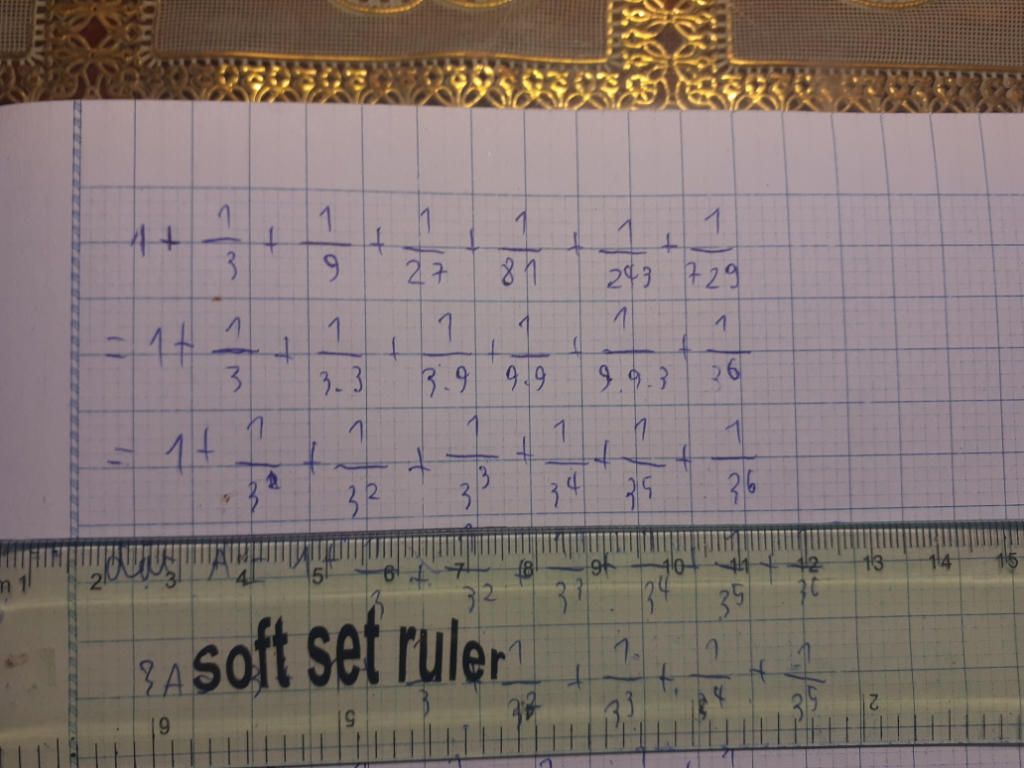 1 + 1/3 + 1/9 + 1/27 + 1/81 + 1/243 + 1/729
= 1 + 1/3 + 1/3.3 + 1/3.9 + 1/9.9 + 1/9.9.3 + 1/3^6
= 1 + 1/3^1 + 1/3^2 + 1/3^3 + 1/3^4 + 1/3^5 + 1/3^6
1 2 3 4 5 6 7 8 9 10 11 12 13 14 15
A = 1 + 1/3 + 1/3^2 + 1/3^3 + 1/3^4 + 1/3^5 + 1/3^6
soft set ruler
3A 1/3 + 1/3^2 + 1/3^3 + 1/3^4 + 1/3^5
6 5 2